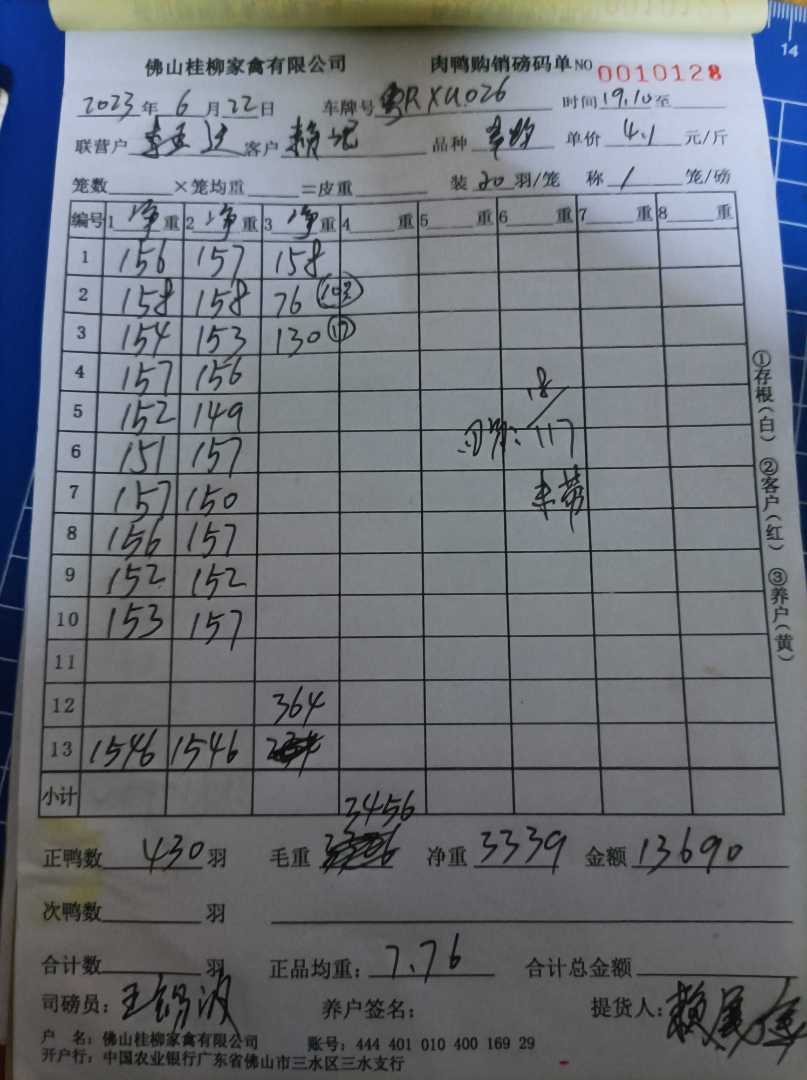 佛山桂柳家禽有限公司 肉鸭购销磅码单 NO 0010128
2023年6月22日 车牌号 粤RXU026 时间19.10至
联营户 客户 赖记 品种 单价 4.1 元/斤
笼数 ×笼均重 =皮重 装 20 羽/笼 称 1 笼/磅
编号 1 净 重 2 净 重 3 净 重 4 重 5 重 6 重 7 重 8 重
1 156 157 158
2 158 158 76
3 154 153 130 17
4 157 156
5 152 149 18
6 151 157 117
7 157 150
8 156 157
9 152 152
10 153 157
11
12 364
13 1546 1546
小计 3456
正鸭数 430 羽 毛重 净重 3339 金额 13690
次鸭数 羽
合计数 羽 正品均重: 7.76 合计总金额
司磅员: 养户签名: 提货人:
户 名: 佛山桂柳家禽有限公司 账号: 444 401 010 400 169 29
开户行: 中国农业银行广东省佛山市三水区三水支行
①存根(白) ②客户(红) ③养户(黄)
14